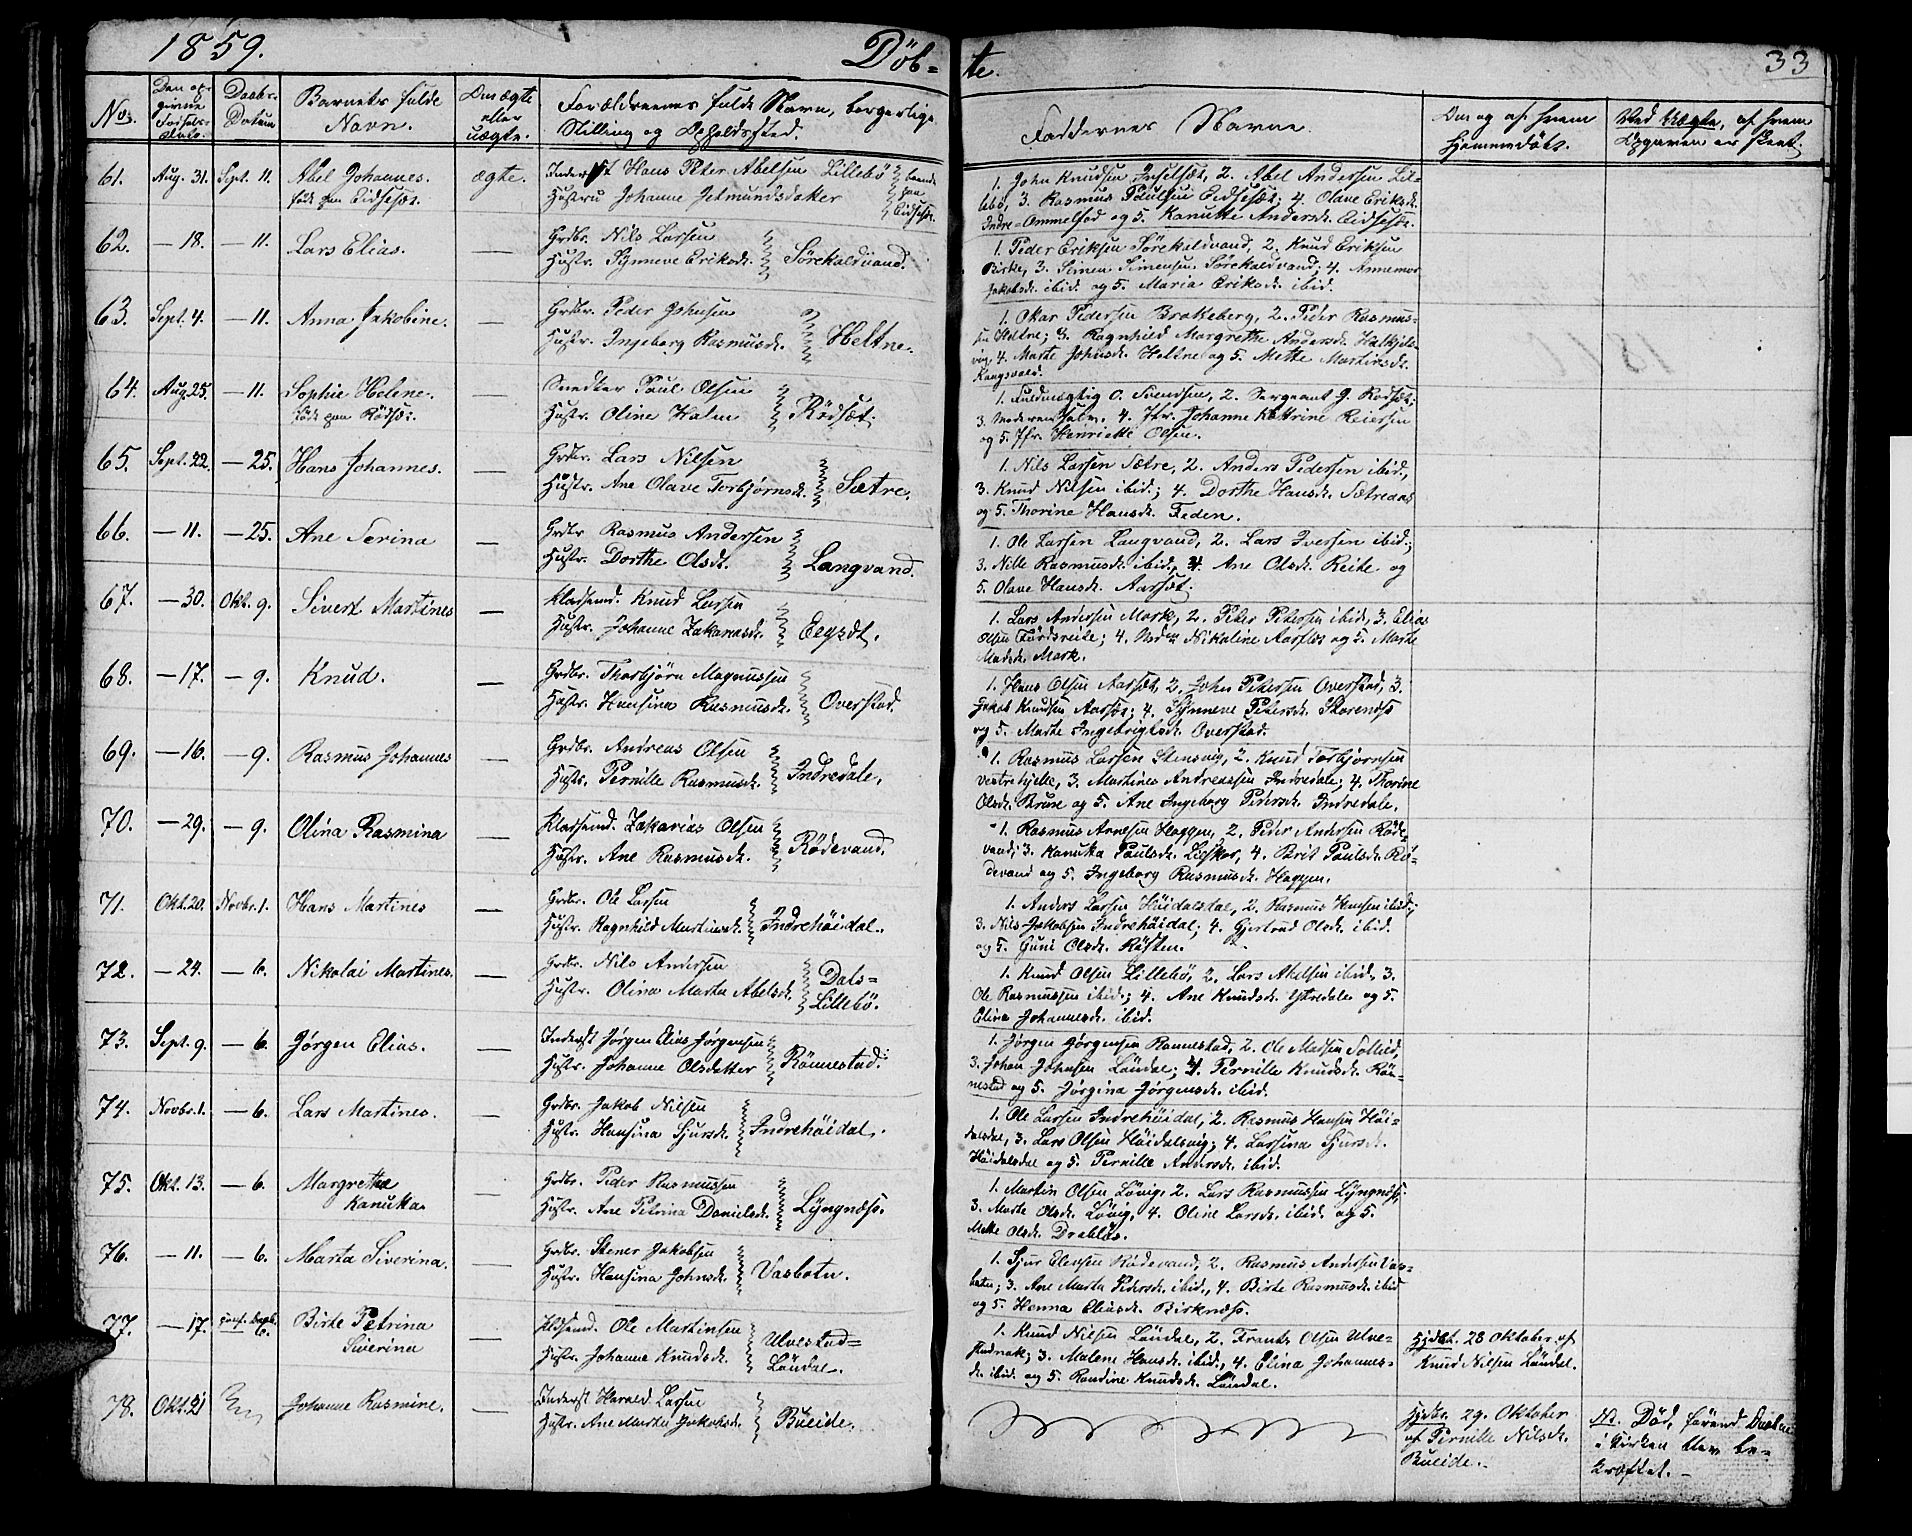 1859.
Döb=
te.
33
No.
Den op-
givne
Födsels-
dato.
Daabs-
Datum
Barnets fulde
Navn.
Om ægte
eller
uægte.
Forældrenes fulde Navn, borgerlige
Stilling og Opholdssted.
Faddernes Navne.
Om og af hvem
Hjemmedöbt.
Ved Uægte, af hvem
Opgaven er skeet.
61. Aug. 31. Sept. 11. Abel Johannes. ægte. Inderst Hans Peter Abelsen Lillebö
född paa Eidsesæt. Hustru Johanne Jetmundsdatter
boende
paa
Eidsesæt.
1. John Knudsen Indselsæt, 2. Abel Andersen Lil-
lebö, 3. Rasmus Paulsen Eidsesæt; 4. Olave Eriksd.
Indre-Ommelsfod og 5. Kanutte Andersd. Eidsesæt.
62. — 18. — 11. Lars Elias. — Grdbr. Nils Larsen
Hustr. Synneve Eriksd. Sörekaldvand.
1. Peder Eriksen Sörekaldvand, 2. Knud Eriksen
Birke, 3. Simen Simensen Sörekaldvand; 4. Annemor
Jakobsd. ibid og 5. Maria Eriksd. ibid.
63. Sept. 4. — 11. Anna Jakobine. — Grdbr. Peder Johnsen
Hustr. Ingeborg Rasmusd. Heltne.
1. Okar Pedersen Brakeberg, 2. Peder Rasmus-
sen Heltne; 3. Ragnhild Margrethe Andersd. Halkjels-
vig, 4. Marte Johnsd. Heltne og 5. Mette Martinsd.
Kongsvold.
64. Aug. 25. — 11. Sophie Helene. — Snedker Paul Olsen
född paa Rödsæt. Hustr. Oline Holm Rödsæt.
1. Fuldmægtig O. Svendsen, 2. Sergeant G. Rödsæt;
3. Madame Holm, 4. Jfr. Johanne Katrine Reiersen
og 5. Jfr. Henriette Olsen.
65. Sept. 22. — 25. Hans Johannes. — Grdbr. Lars Nilsen
Hustr. Ane Olave Torbjörnsd. Sætre.
1. Nils Larsen Sætre, 2. Anders Pedersen ibid.,
3. Knud Nilsen ibid.; 4. Dorthe Hansd. Sætredal
og 5. Thorine Hansd. Feden.
66. — 11. — 25. Ane Serina — Grdbr Rasmus Andersen
Hustr. Dorthe Olsd. Langvand.
1. Ole Larsen Langvand, 2. Lars Iversen ibid.;
3. Nille Rasmusd. ibid., 4. Ane Olsd. Reite og
5. Olave Hansd. Aarsæt.
67. — 30. Okt. 9. Sivert Martines — Kladsemd. Knud Larsen
Hustr. Johanne Zakariasd. Eegsæt.
1. Lars Andersen Mark, 2. Peter Petersen ibid, 3. Elias
Olsen Fürdsreite; 4. Nikoline Aarflot og 5. Marte
Madsd. Mark.
68. — 17. — 9. Knud. — Grdbr. Thorbjörn Magnussen
Hustr. Hansina Rasmusd. Overstad.
1. Hans Olsen Aarsæt, 2. John Petersen Overstad, 3.
Jakob Knudsen Aarsæt; 4. Synneve Petersd. Storenæs
og 5. Marte Ingebrigtsd. Overstad.
69. — 16. — 9. Rasmus Johannes — Grdbr. Andreas Olsen
Hustr. Pernille Rasmusd. Indredale.
1. Rasmus Larsen Stensvig, 2. Knud Torbjörnsen
Vestrehjelle, 3. Martines Andreassen Indredale; 4. Thorine
Olsd. Brune og 5. Ane Ingeborg Pedersd. Indredale.
70. — 29. — 9. Olina Rasmina — Kladsemd. Zakarias Olsen
Hustr. Ane Rasmusd. Rödevand.
1. Rasmus Arnesen Haggen, 2. Peder Andersen Röde-
vand; 3. Kanutta Paulsd. Lidskar, 4. Brit Paulsd. Rö-
devand og 5. Ingeborg Rasmusd. Haggen.
71. Okt. 20. Novbr. 1. Hans Martines — Grdbr. Ole Larsen
Hustr. Ragnhild Martinsd. Indrehöidal.
1. Anders Larsen Höidalsdal, 2. Rasmus Hansen ibid.;
3. Nils Jakobsen Indrehöidal; 4. Gjertrud Olsd. ibid.
og 5. Guni Olsd. Rösten.
72. — 24. — 6. Nikolai Martines. — Grdbr. Nils Andersen
Hustr. Olina Marta Abelsd. Dals=
Lillebö.
1. Knud Olsen Lillebö, 2. Lars Abelsen ibid, 3.
Ole Rasmussen ibid.; 4. Ane Knudsd. Ystredale og 5.
Elina Johannesd. ibid.
73. Sept. 9. — 6. Jørgen Elias. — Inderst Jørgen Elias Jørgensen
Hustr. Johanne Olsdatter Rönnestad.
1. Jørgen Jørgensen Rönnestad, 2. Ole Madsen Sollid,
3. Johan Johnsen Löndal; 4. Pernille Knudsd. Rön-
nestad og 5. Jørgina Jørgensd. ibid.
74. Novbr. 1. — 6. Lars Martines. — Grdbr. Jakob Nilsen
Hustr. Hansina Sjursd. Indrehöidal.
1. Ole Larsen Indrehöidal, 2. Rasmus Hansen Höi-
dalsdal, 3. Lars Olsen Höidalsvig; 4. Larsina Sjursd.
Höidalsdal og 5. Pernille Andersd. ibid.
75. Okt. 13. — 6. Margrethe
Kanutta — Grdbr. Peder Rasmussen
Hustr. Ane Petrina Danielsd. Lÿngnæs.
1. Martin Olsen Lövig, 2. Lars Rasmussen Lÿngnæs;
3. Marte Olsd. Lövig, 4. Oline Larsd. ibid. og 5.
Mette Olsd. Drabløs.
76. — 11. — 6. Marta Siverina. — Grdbr. Stener Jakobsen
Hustr. Hansina Johnsd. Vasbotn.
1. Sjur Elensen Rödevand, 2. Rasmus Andersen Vas-
botn; 3. Ane Marta Pedersd. ibid., 4. Birte Rasmusd. ibid
og 5. Henna Eliasd. Birknæs.
77. — 17. 6. Birte Petrina
Siverina — Kldsemd. Ole Martinsen
Hustr. Johanne Knudsd. Ulvestad=
Löndal.
1. Knud Nilsen Löndal, 2. Frants Olsen Ulve-
stadnak; 3. Malene Hansd. ibid., 4. Elina Johannes-
d. ibid. og 5. Randine Knudsd. Löndal.
Hjdbt. 28 Oktober af
Knud Nilsen Löndal.
78. Okt. 21 Johanne Rasmine. — Inderst Harald Larsen
Hustr. Ane Marta Jakobsd. Bueide.
Hjdbt. 29. Oktober
af Pernille Nilsd.
Bueide.
Nt. Död, förend Daaben
i Kirken blev be-
kræftet.